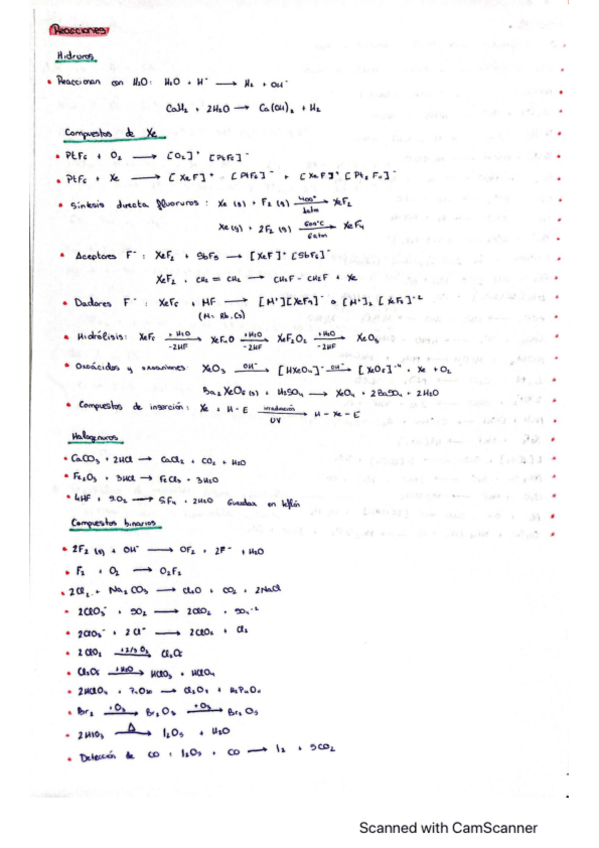 Reacciones
Hidruros
• Reaccionan con H2O: H2O + H⁻ ⟶ H2 + OH⁻
CaH2 + 2H2O ⟶ Ca(OH)2 + H2
Compuestos de Xe
• PtF6 + O2 ⟶ [O2]⁺ [PtF6]⁻
• PtF6 + Xe ⟶ [XeF]⁺ [PtF6]⁻ + [XeF]⁺ [Pt2F11]⁻
• Síntesis directa fluoruros: Xe (g) + F2 (g) 400° 1atm ⟶ XeF2
Xe (g) + 2F2 (g) 600°C 6atm ⟶ XeF4
• Aceptores F⁻: XeF2 + SbF5 ⟶ [XeF]⁺ [SbF6]⁻
XeF2 + CH2 = CH2 ⟶ CH2F - CH2F + Xe
• Dadores F⁻: XeF6 + MF ⟶ [M⁺][XeF7]⁻ o [M⁺]2 [XeF8]⁻²
(M = Rb, Cs)
• Hidrólisis: XeF6 +H2O -2HF ⟶ XeF4O +H2O -2HF ⟶ XeF2O2 +H2O -2HF ⟶ XeO3
• Oxoácidos y oxoaniones: XeO3 OH⁻ ⟶ [HXeO4]⁻ OH⁻ ⟶ [XeO6]⁻⁴ + Xe + O2
Ba2XeO6(s) + H2SO4 ⟶ XeO4 + 2BaSO4 + 2H2O
• Compuestos de inserción: Xe + H-E irradiación UV ⟶ H - Xe - E
Halogenuros
• CaCO3 + 2HCl ⟶ CaCl2 + CO2 + H2O
• Fe2O3 + HCl ⟶ FeCl3 + 3H2O
• 4HF + SiO2 ⟶ SiF4 + 2H2O Guardar en teflón
Compuestos binarios
• 2F2 (g) + OH⁻ ⟶ OF2 + 2F⁻ + H2O
• F2 + O2 ⟶ O2F2
• 2Cl2 + Na2CO3 ⟶ Cl2O + CO2 + 2NaCl
• 2ClO3⁻ + SO2 ⟶ 2ClO2 + SO4⁻²
• 2ClO3⁻ + 2Cl⁻ ⟶ 2ClO2 + Cl2
• 2ClO2 +2/3 O3 ⟶ Cl2O6
• Cl2O6 +H2O ⟶ HClO3 + HClO4
• 2HClO4 + P4O10 ⟶ Cl2O7 + H2P4O11
• Br2 +O3 ⟶ Br2O3 +O3 ⟶ Br2O5
• 2HIO3 Δ ⟶ I2O5 + H2O
• Detección de CO: I2O5 + CO ⟶ I2 + 5CO2
Scanned with CamScanner